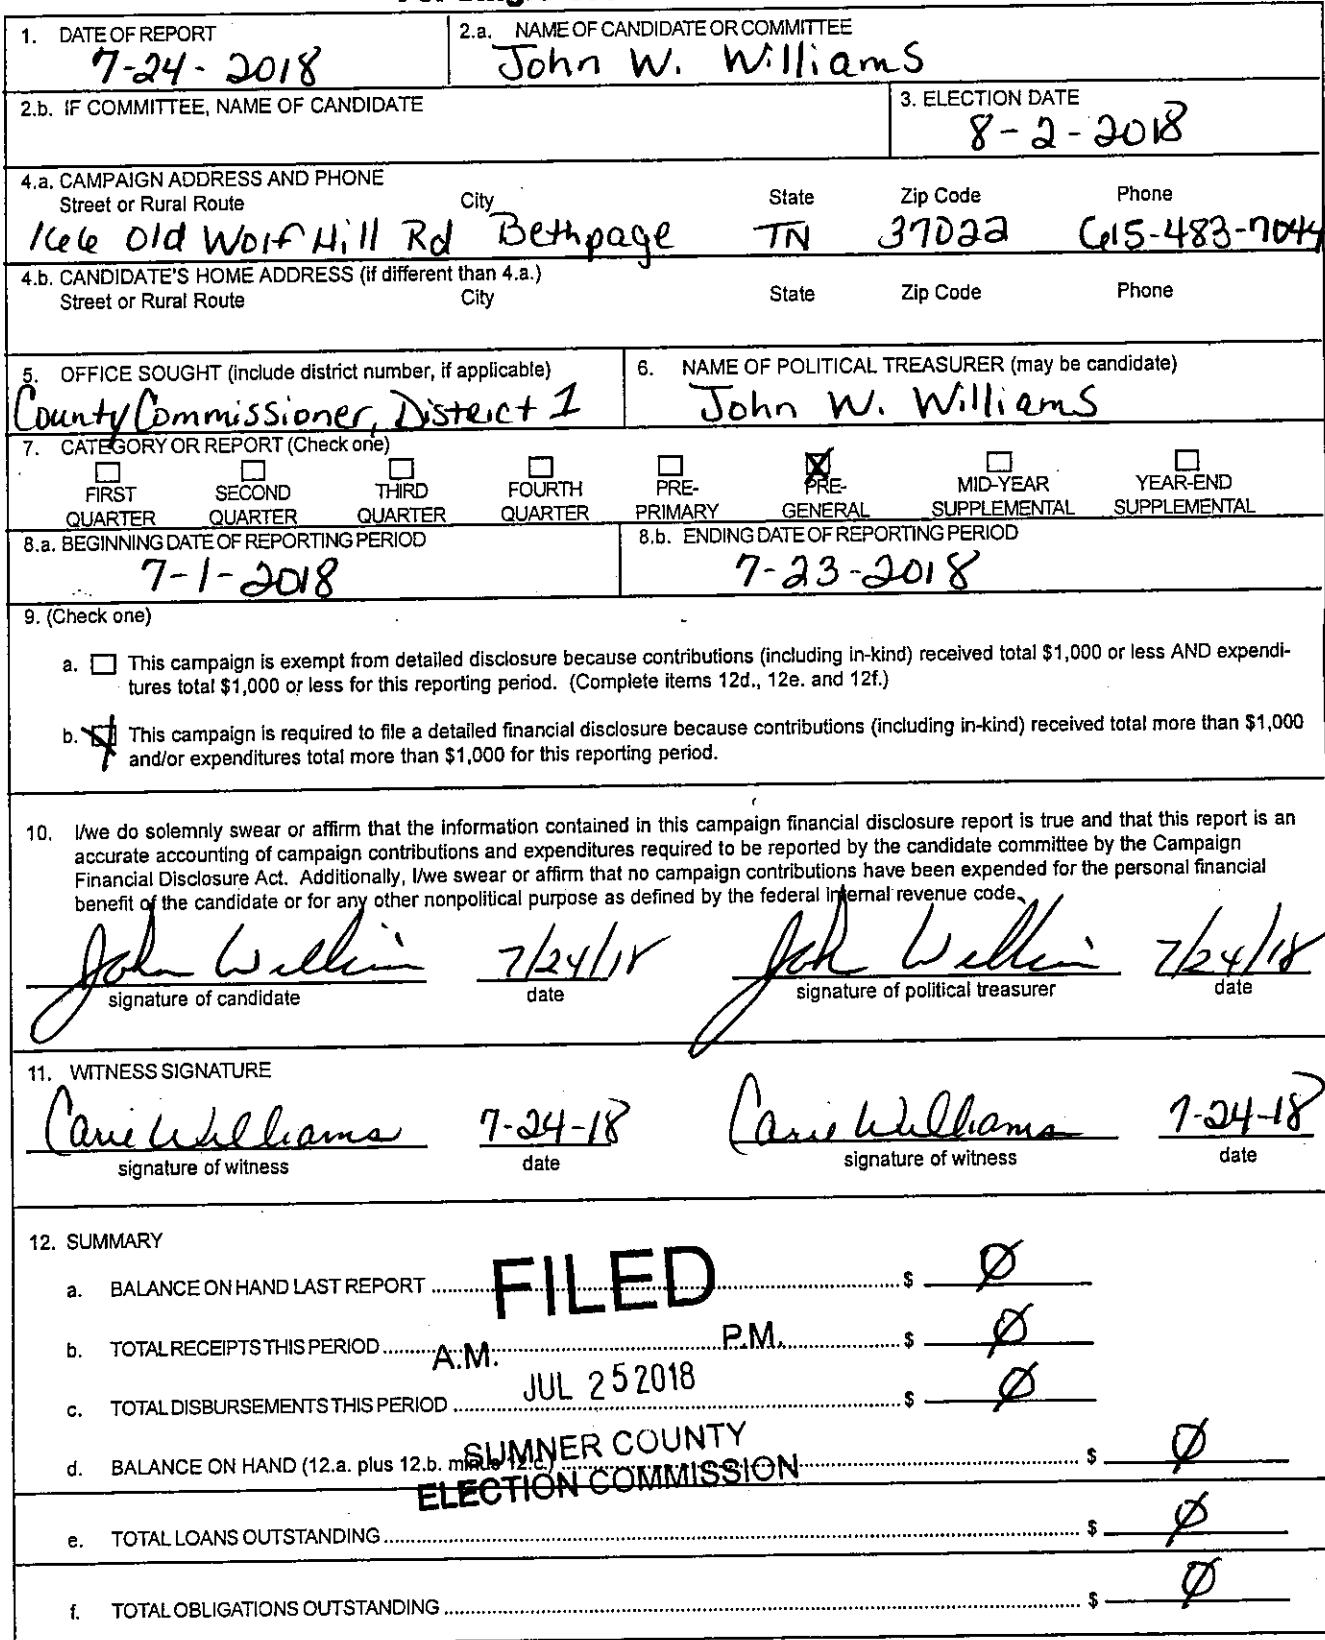 1. DATE OF REPORT
7-24-2018
2.a. NAME OF CANDIDATE OR COMMITTEE
John W. Williams
2.b. IF COMMITTEE, NAME OF CANDIDATE
3. ELECTION DATE
8-2-2018
4.a. CAMPAIGN ADDRESS AND PHONE
Street or Rural Route City State Zip Code Phone
166 Old Wolf Hill Rd Bethpage TN 37022 615-483-7044
4.b. CANDIDATE'S HOME ADDRESS (if different than 4.a.)
Street or Rural Route City State Zip Code Phone
5. OFFICE SOUGHT (include district number, if applicable)
County Commissioner, District 1
6. NAME OF POLITICAL TREASURER (may be candidate)
John W. Williams
7. CATEGORY OR REPORT (Check one)
FIRST QUARTER SECOND QUARTER THIRD QUARTER FOURTH QUARTER PRE-PRIMARY X PRE-GENERAL MID-YEAR SUPPLEMENTAL YEAR-END SUPPLEMENTAL
8.a. BEGINNING DATE OF REPORTING PERIOD
7-1-2018
8.b. ENDING DATE OF REPORTING PERIOD
7-23-2018
9. (Check one)
a. This campaign is exempt from detailed disclosure because contributions (including in-kind) received total $1,000 or less AND expendi-
tures total $1,000 or less for this reporting period. (Complete items 12d., 12e. and 12f.)
b. X This campaign is required to file a detailed financial disclosure because contributions (including in-kind) received total more than $1,000
and/or expenditures total more than $1,000 for this reporting period.
10. I/we do solemnly swear or affirm that the information contained in this campaign financial disclosure report is true and that this report is an
accurate accounting of campaign contributions and expenditures required to be reported by the candidate committee by the Campaign
Financial Disclosure Act. Additionally, I/we swear or affirm that no campaign contributions have been expended for the personal financial
benefit of the candidate or for any other nonpolitical purpose as defined by the federal internal revenue code.
John Williams 7/24/18 John Williams 7/24/18
signature of candidate date signature of political treasurer date
11. WITNESS SIGNATURE
Carie Williams 7-24-18 Carie Williams 7-24-18
signature of witness date signature of witness date
12. SUMMARY
FILED
a. BALANCE ON HAND LAST REPORT $ Ø
b. TOTAL RECEIPTS THIS PERIOD $ Ø
A.M. P.M.
JUL 25 2018
c. TOTAL DISBURSEMENTS THIS PERIOD $ Ø
SUMNER COUNTY
d. BALANCE ON HAND (12.a. plus 12.b. minus 12.c.) $ Ø
ELECTION COMMISSION
e. TOTAL LOANS OUTSTANDING $ Ø
f. TOTAL OBLIGATIONS OUTSTANDING $ Ø